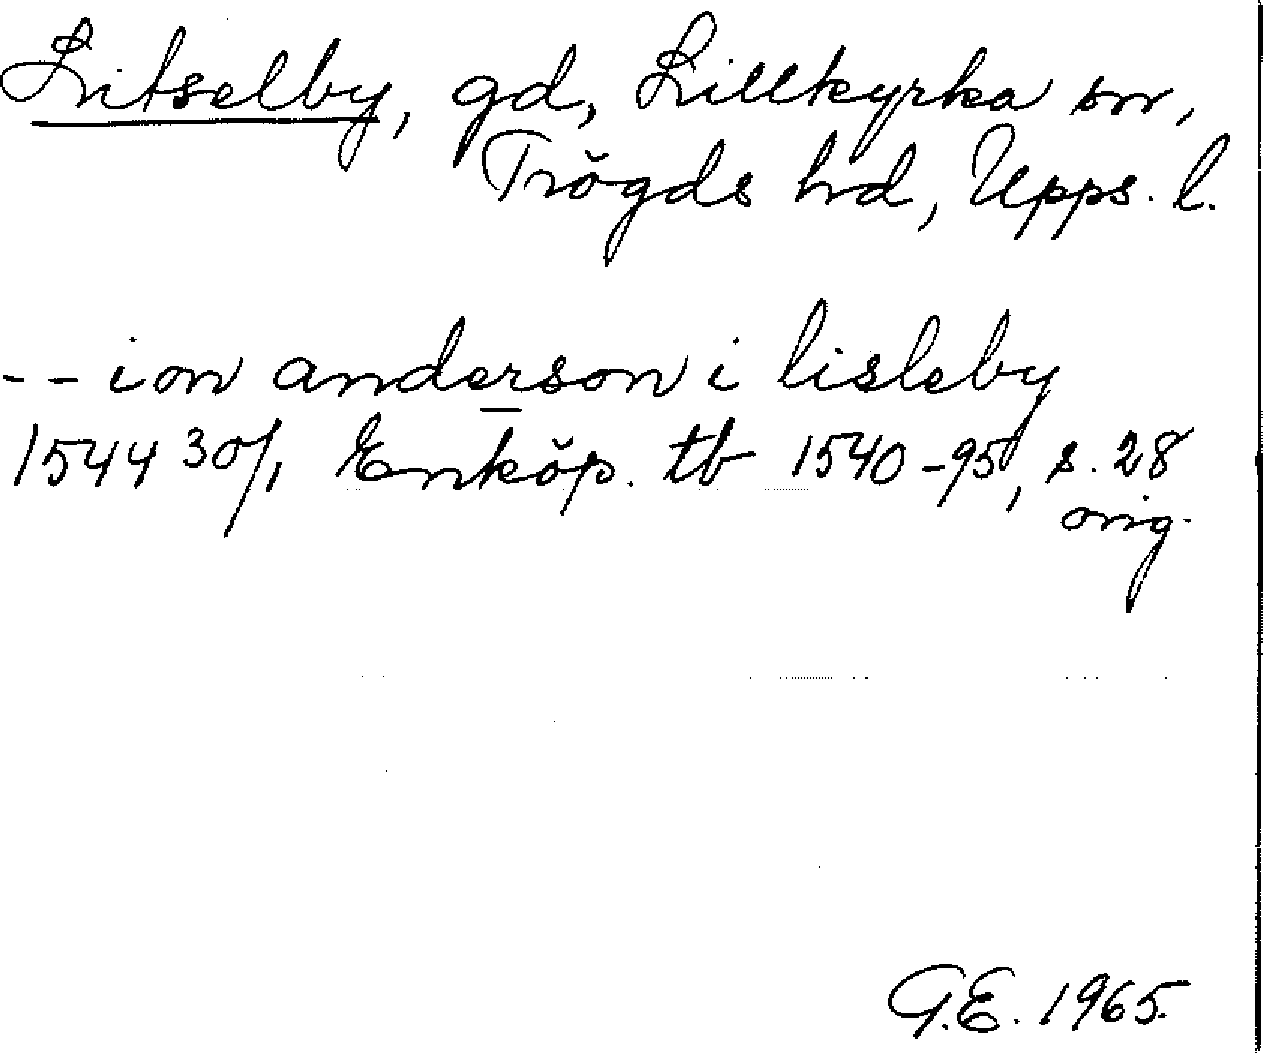 Litselby, gd, Lillkyrka sn,
Trögds hd, Upps. l.
-- ion anderson i lisleby
1544 30/1 Enköp. tb 1540-95, s. 28
orig.
G.E. 1965.